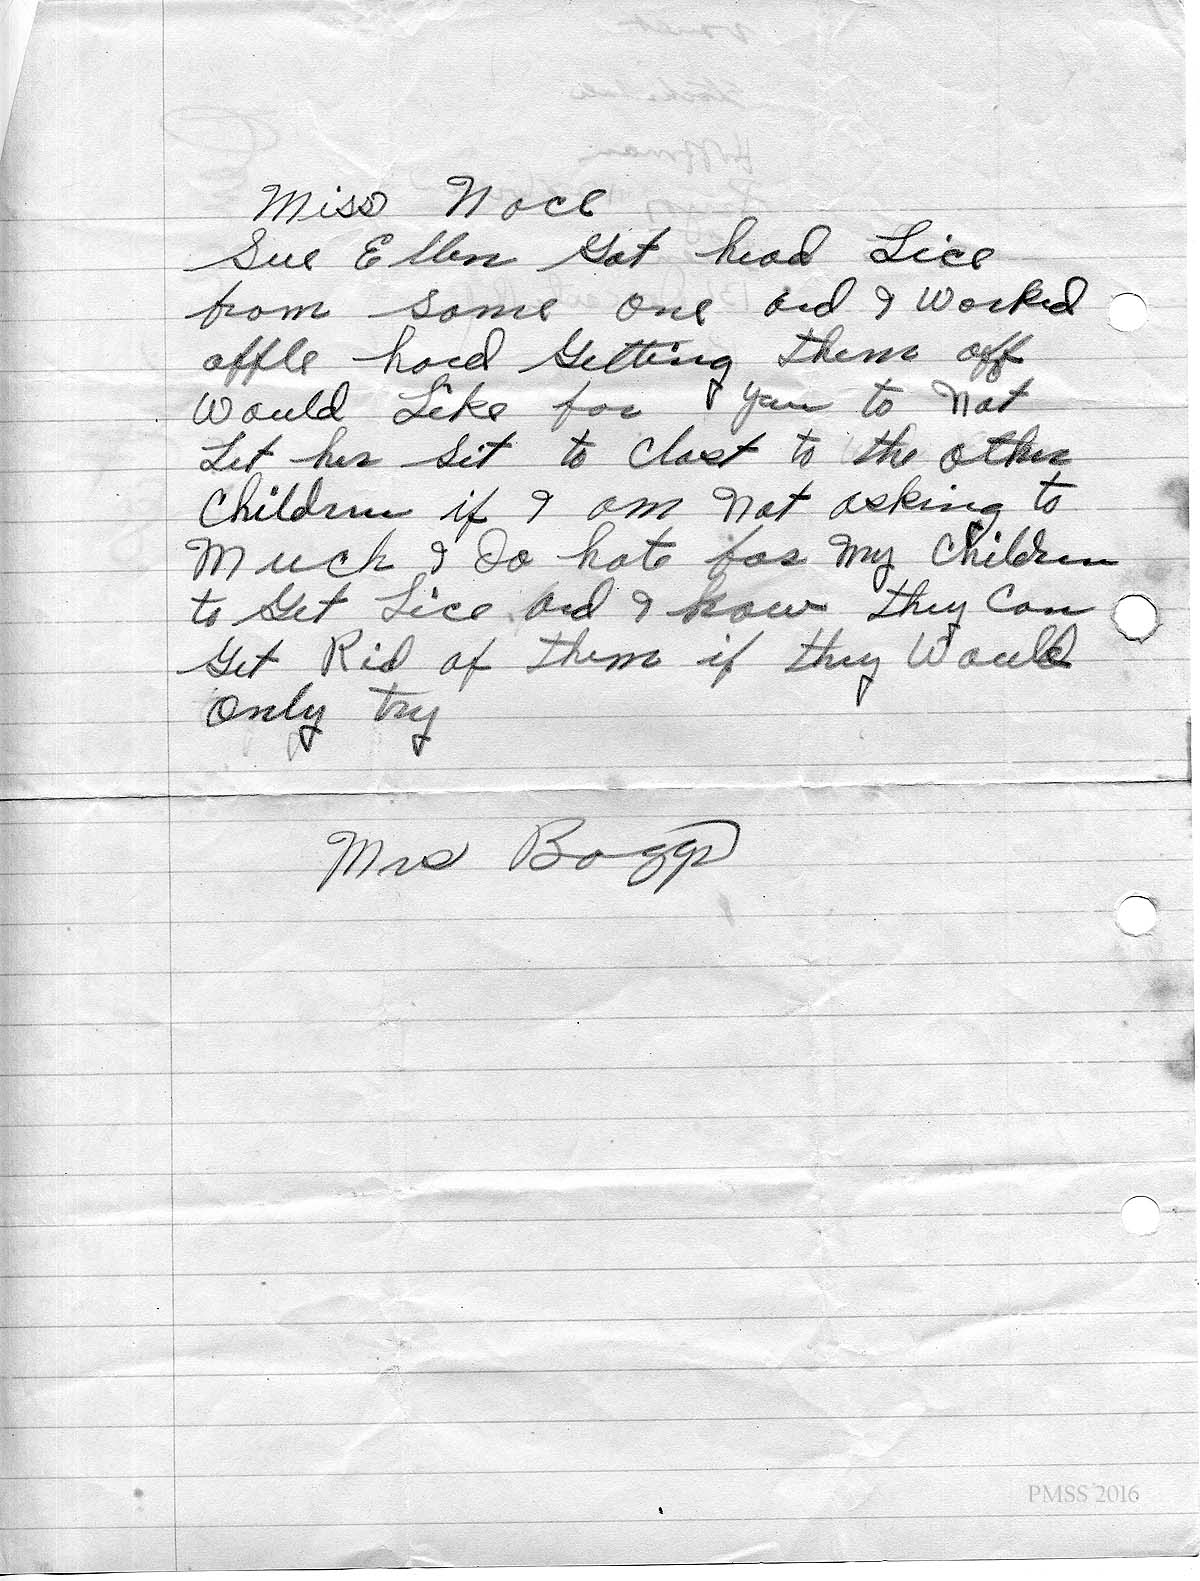 Miss Nace
Sue Ellen Got head Lice
from some one and I worked
offle hard Getting them off
Would Like for you to Not
Let her sit to clost to the other
Children if I am Not asking to
Much I Do hate for My Children
to Get Lice and I know they Can
Get Rid of them if they Would
Only try
Mrs Boggs
PMSS 2016